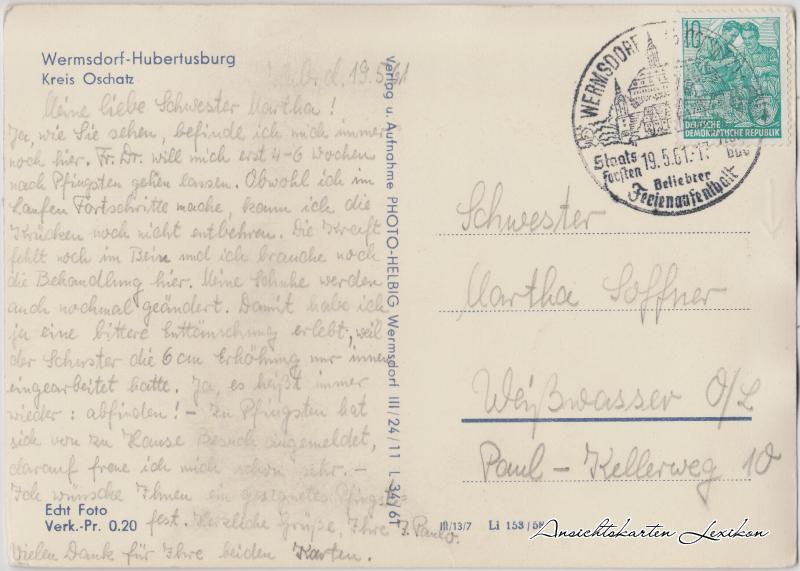 Wermsdorf-Hubertusburg
Kreis Oschatz
d. 19.5.61
Meine liebe Schwester Martha!
Ja, wie Sie sehen, befinde ich mich immer
noch hier. Fr. Dr. will mich erst 4-6 Wochen
nach Pfingsten gehen lassen. Obwohl ich im
Laufen Fortschritte mache, kann ich die
Krücken noch nicht entbehren. Die Kraft
fehlt noch im Bein und ich brauche noch
die Behandlung hier. Meine Schuhe werden
auch nochmal geändert. Damit habe ich
ja eine bittere Enttäuschung erlebt, weil
der Schuster die 6 cm Erhöhung nur innen
eingearbeitet hatte. Ja, es heißt immer
wieder: abfinden! - Zu Pfingsten hat
sich von zu Hause Besuch angemeldet,
darauf freue ich mich schon sehr. -
Ich wünsche Ihnen ein gesegnetes Pfingst=
fest. Herzliche Grüße, Ihre I. Paul.
Vielen Dank für Ihre beiden Karten.
Echt Foto
Verk.-Pr. 0.20
Verlag u. Aufnahme PHOTO-HELBIG Wermsdorf III/24/11 L 34/61
WERMSDORF
Staats
forsten
19.5.61.-17
Beliebter
Ferienaufenthalt
10
DEUTSCHE
DEMOKRATISCHE REPUBLIK
Schwester
Martha Soffner
Weißwasser O/L
Paul-Kellerweg 10
III/13/7 Li 153/58
Ansichtskarten Lexikon